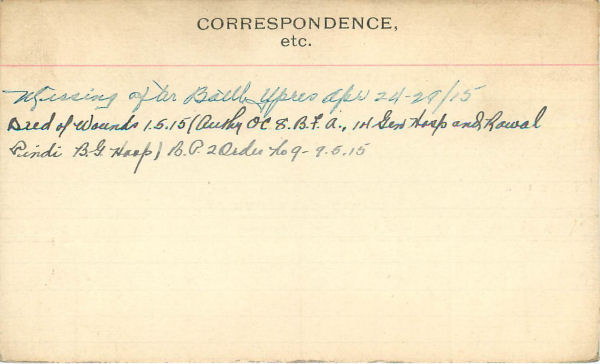 CORRESPONDENCE,
etc.
Missing after Battle Ypres Apr 24-29/15
Died of Wounds 1.5.15 (Authy OC 8.B.F.A., 14 Gen Hosp and Rawal
Pindi B.G Hosp) B.P. 2 Order No 9 - 9.5.15